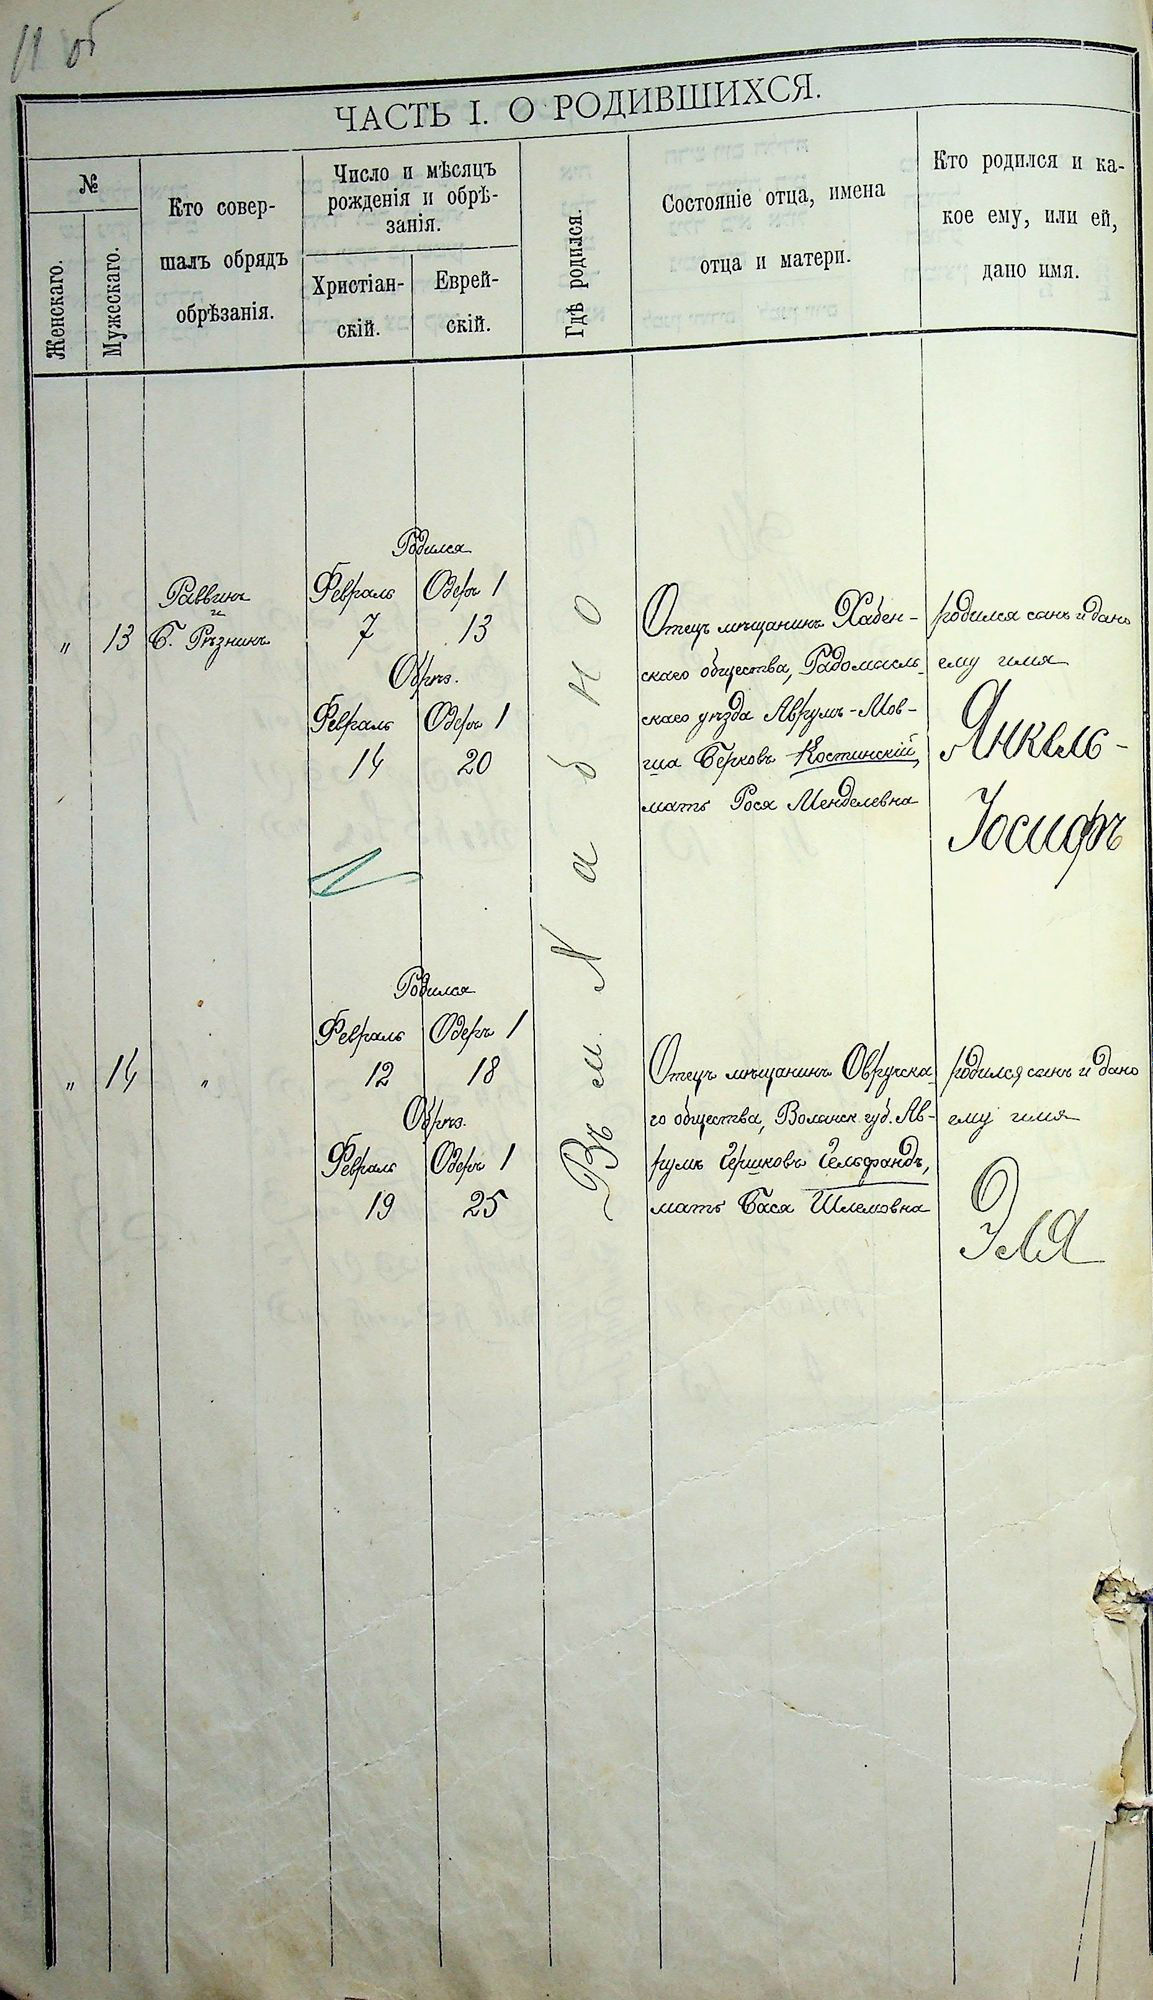 11 об
ЧАСТЬ I. О РОДИВШИХСЯ.
№
Женскаго.
Мужескаго.
Кто совер-
шалъ обрядъ
обрѣзанія.
Число и мѣсяцъ
рожденія и обрѣ-
занія.
Христіан-
скій.
Еврей-
скій.
Гдѣ родился.
Состояніе отца, имена
отца и матери.
Кто родился и ка-
кое ему, или ей,
дано имя.
Родился
Раввинъ
и
Б. Рѣзникъ
Февраль
Одеръ 1
" 13
7
13
Обрѣз.
Февраль
Одеръ 1
14
20
Въ м. Хабно
Отецъ мѣщанинъ Хабен-
скаго общества, Радомысль-
скаго уѣзда Аврумъ-Мов-
ша Берковъ Костинскій,
мать Рося Менделевна
родился сынъ и дано
ему имя
Янкель-
Іосифъ
Родился
Февраль
Одеръ 1
" 14 "
12
18
Обрѣз.
Февраль
Одеръ 1
19
25
Отецъ мѣщанинъ Овручска
го общества, Волынск. губ. Ав-
румъ Гершковъ Гельфандъ,
мать Бася Шлемовна
родился сынъ и дано
ему имя
Эля